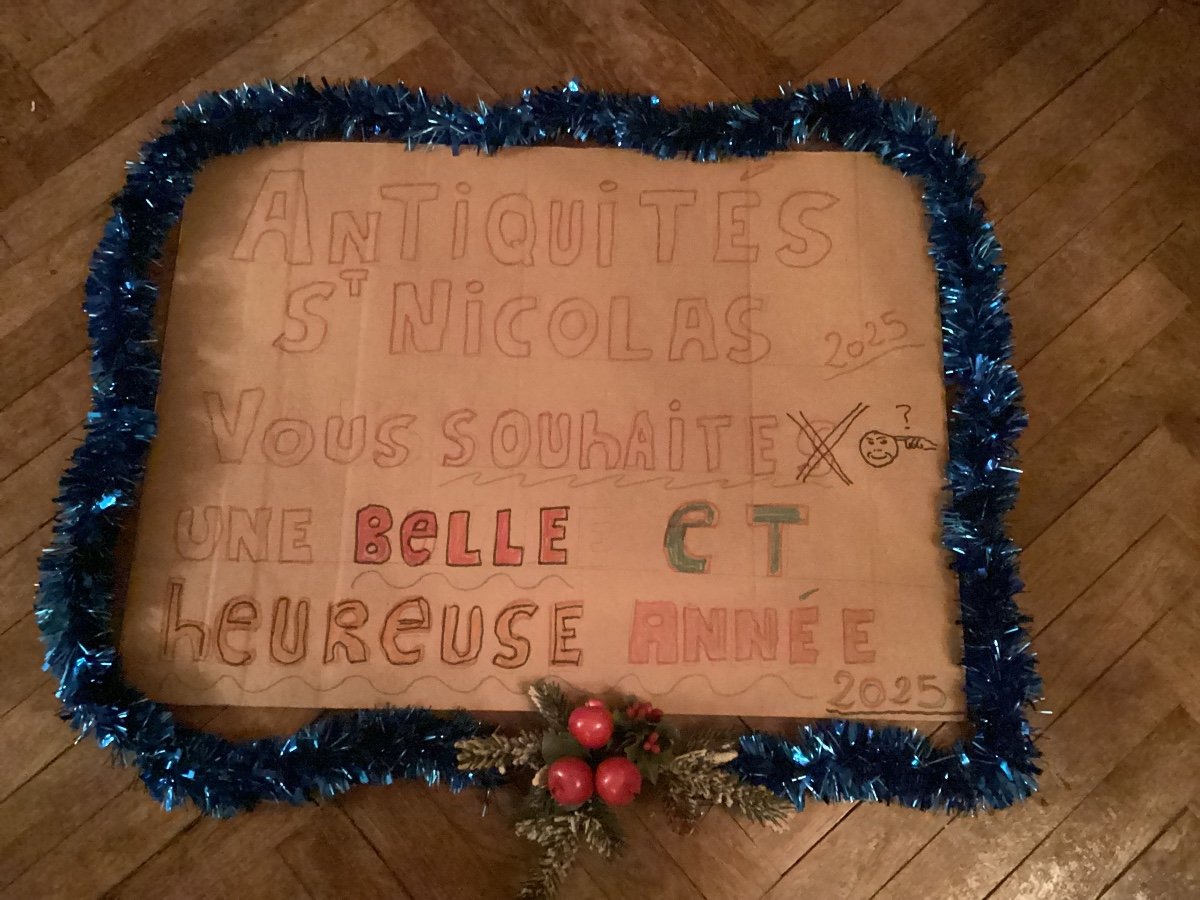 ANTiQUiTÉS
ST NiCOLAS
2025
VOUS SOUhAiTES
?
UNE BeLLE eT
heUReUSE ANNÉE
2025